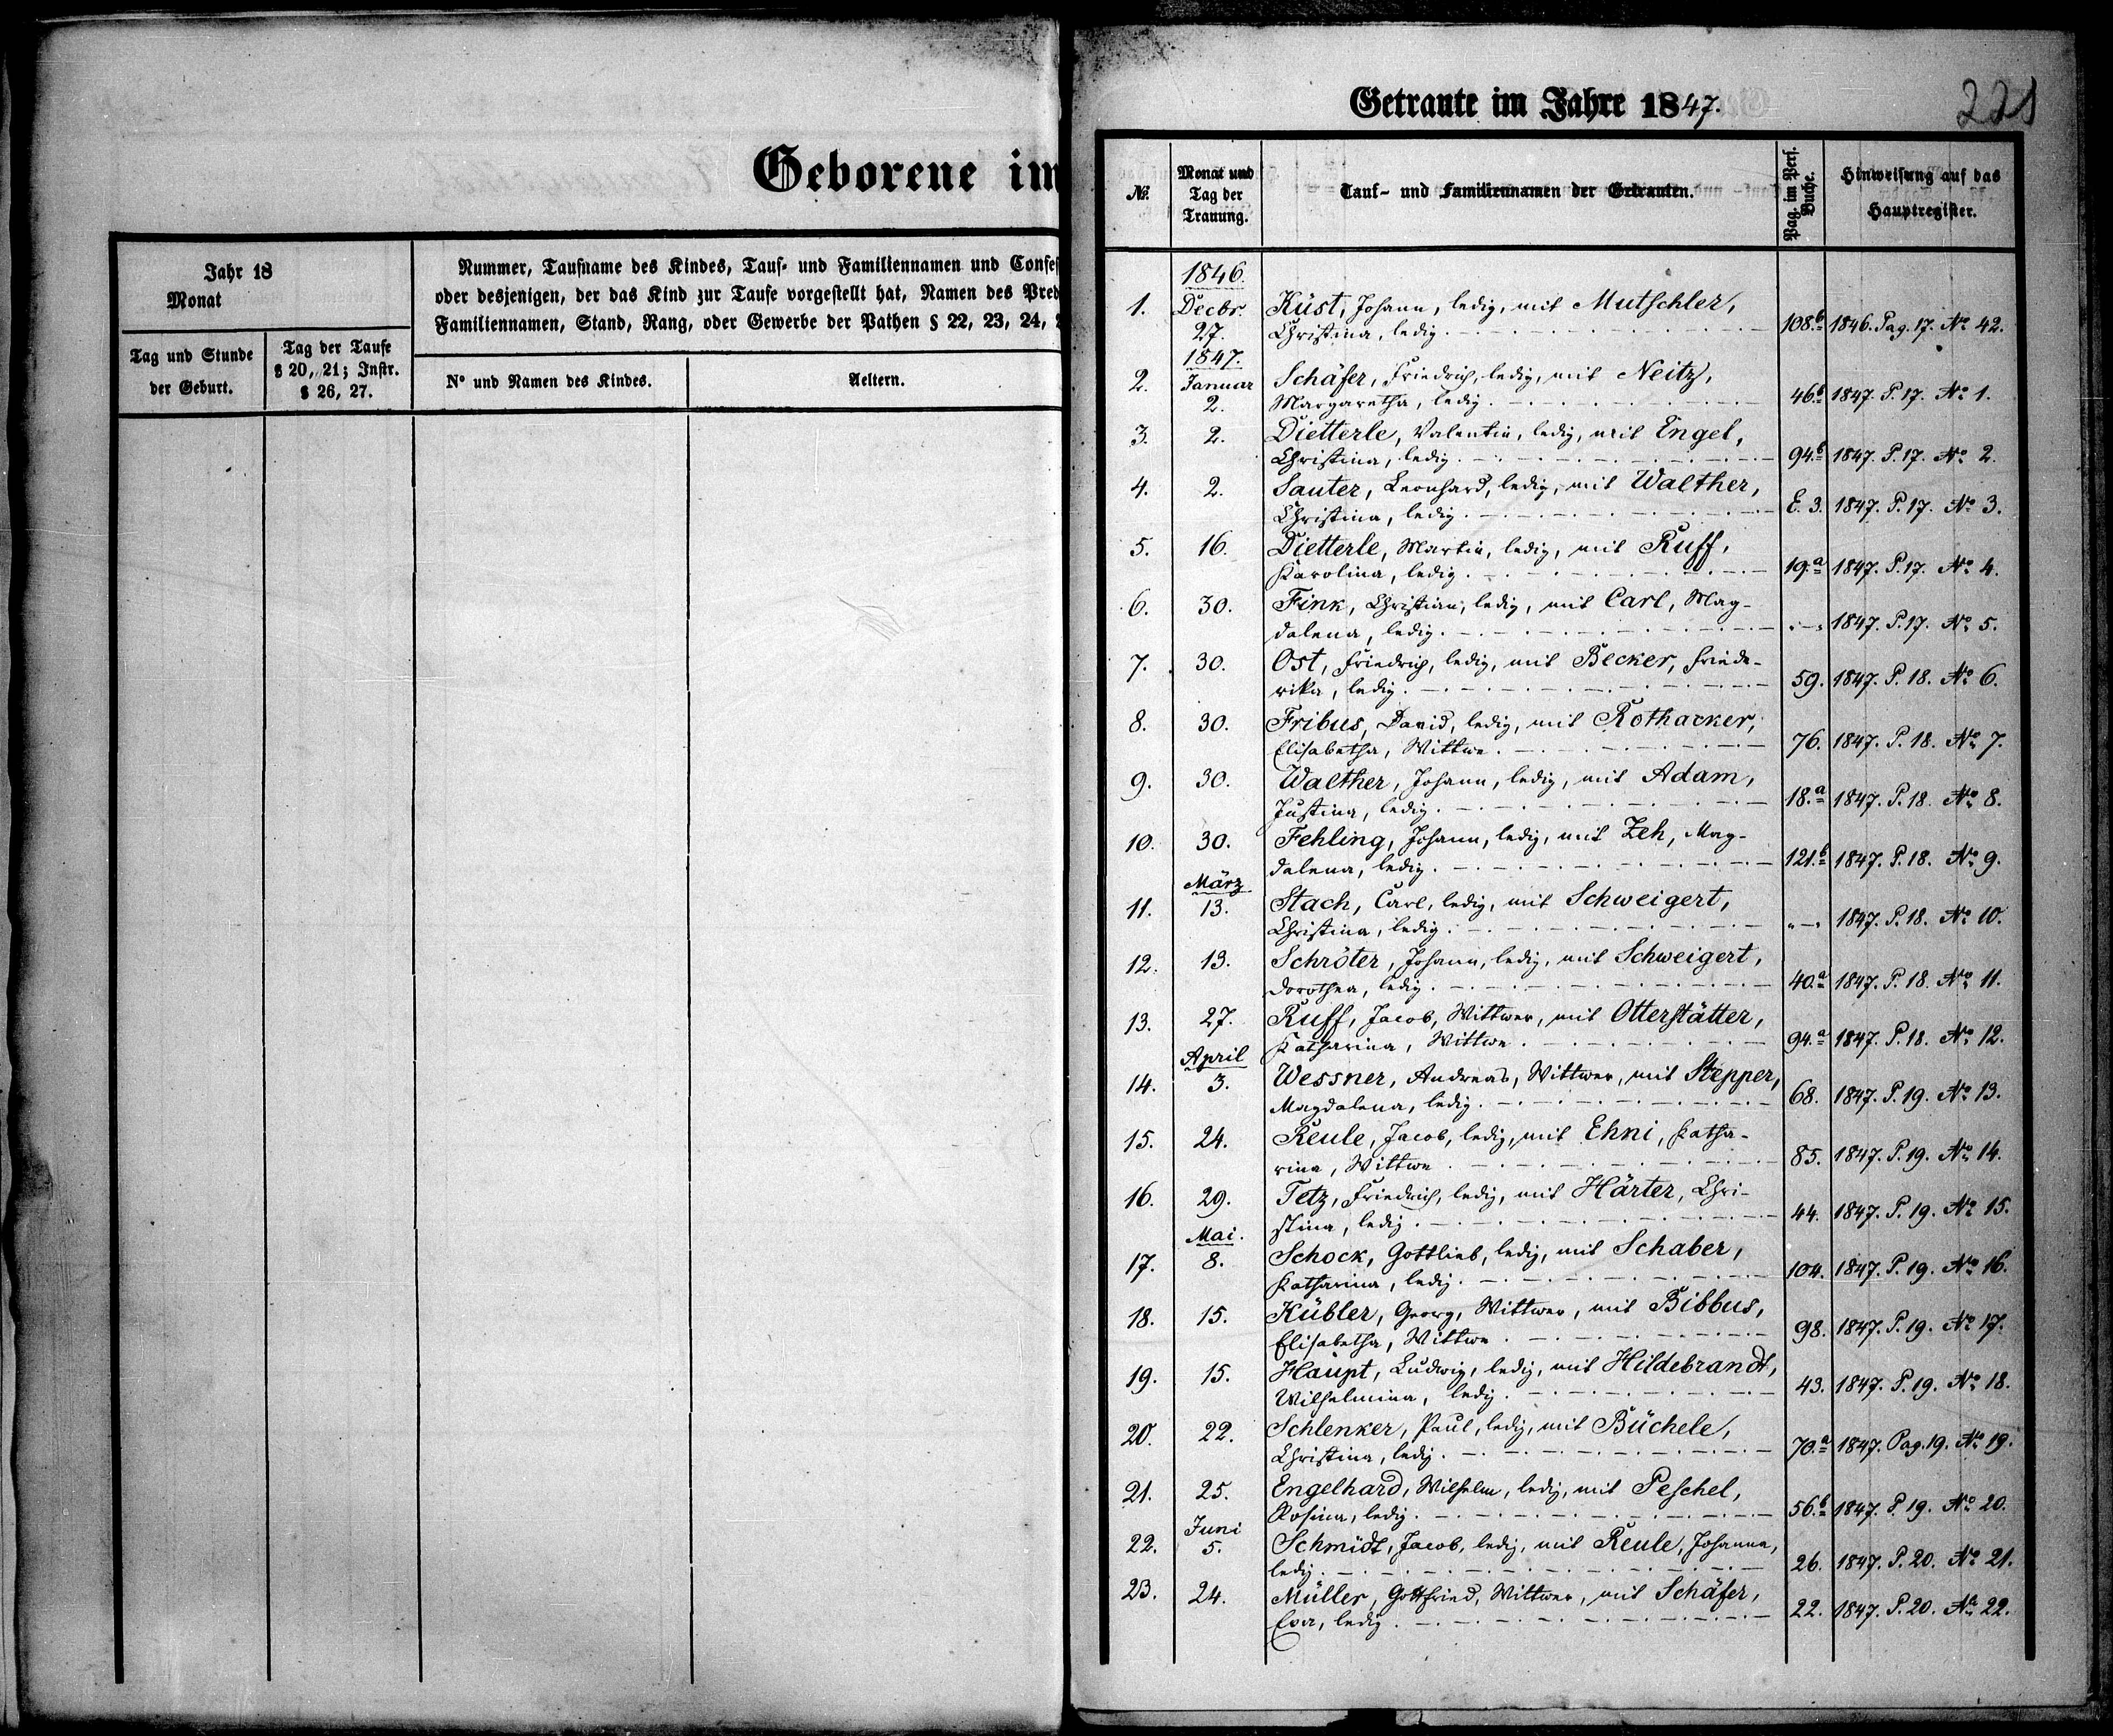 Geborene im
Jahr 18
Monat
Tag und Stunde
der Geburt.
Tag der Taufe
§ 20, 21; Instr.
§ 26, 27.
Nummer, Taufname des Kindes, Tauf- und Familiennamen und Confes
oder desjenigen, der das Kind zur Taufe vorgestellt hat, Namen des Pred
Familiennamen, Stand, Rang, oder Gewerbe der Pathen § 22, 23, 24,
No und Namen des Kindes.
Aeltern.
221
Getraute im Jahre 1847.
No.
Monat und
Tag der
Trauung.
Tauf- und Familiennamen der Getrauten.
Pag. im Pers.
Buche.
Hinweisung auf das
Hauptregister.
1846.
1. Decbr. Küst, Johann, ledig, mit Mutschler,
27. Christina, ledig. 108.b 1846. Pag. 17. No 42.
1847.
2. Januar Schäfer, Friedrich, ledig, mit Neitz,
2. Margaretha, ledig. 46.b 1847. P. 17. No 1.
3. 2. Dietterle, Valentin, ledig, mit Engel,
Christina, ledig. 94.b 1847. P. 17. No 2.
4. 2. Sauter, Leonhard, ledig, mit Walther,
Christina, ledig. E. 3. 1847. P. 17. No 3.
5. 16. Dietterle, Martin, ledig, mit Ruff,
Karolina, ledig. 19.a 1847. P. 17. No 4.
6. 30. Fink, Christian, ledig, mit Carl, Mag-
dalena, ledig. „—„ 1847. P. 17. No 5.
7. 30. Ost, Friedrich, ledig, mit Becker, Friede-
rika, ledig. 59. 1847. P. 18. No 6.
8. 30. Fribus, David, ledig, mit Rothacker,
Elisabetha, Wittwe. 76. 1847. P. 18. No 7.
9. 30. Walther, Johann, ledig, mit Adam,
Justina, ledig. 18.a 1847. P. 18. No 8.
10. 30. Fehling, Johann, ledig, mit Zeh, Mag-
dalena, ledig. 121.b 1847. P. 18. No 9.
März
11. 13. Stach, Carl, ledig, mit Schweigert,
Christina, ledig. „—„ 1847. P. 18. No 10.
12. 13. Schröter, Johann, ledig, mit Schweigert,
Dorothea, ledig. 40.a 1847. P. 18. No 11.
13. 27. Ruff, Jacob, Wittwer, mit Otterstätter,
Katharina, Wittwe. 94.a 1847. P. 18. No 12.
April
14. 3. Wessner, Andreas, Wittwer, mit Stepper,
Magdalena, ledig. 68. 1847. P. 19. No 13.
15. 24. Reule, Jacob, ledig, mit Ehni, Katha-
rina, Wittwe. 85. 1847. P. 19. No 14.
16. 29. Tetz, Friedrich, ledig, mit Härter, Chri-
stina, ledig. 44. 1847. P. 19. No 15.
Mai.
17. 8. Schock, Gottlieb, ledig, mit Schaber,
Katharina, ledig. 104. 1847. P. 19. No 16.
18. 15. Kübler, Georg, Wittwer, mit Bibbus,
Elisabetha, Wittwe. 98. 1847. P. 19. No 17.
19. 15. Haupt, Ludwig, ledig, mit Hildebrandt,
Wilhelmina, ledig. 43. 1847. P. 19. No 18.
20. 22. Schlenker, Paul, ledig, mit Büchele,
Christina, ledig. 70.a 1847. Pag. 19. No 19.
21. 25. Engelhard, Wilhelm, ledig, mit Peschel,
Rosina, ledig. 56.b 1847. P. 19. No 20.
Juni
22. 5. Schmidt, Jacob, ledig, mit Reule, Johanna,
ledig. 26. 1847. P. 20. No 21.
23. 24. Müller, Gottfried, Wittwer, mit Schäfer,
Eva, ledig. 22. 1847. P. 20. No 22.